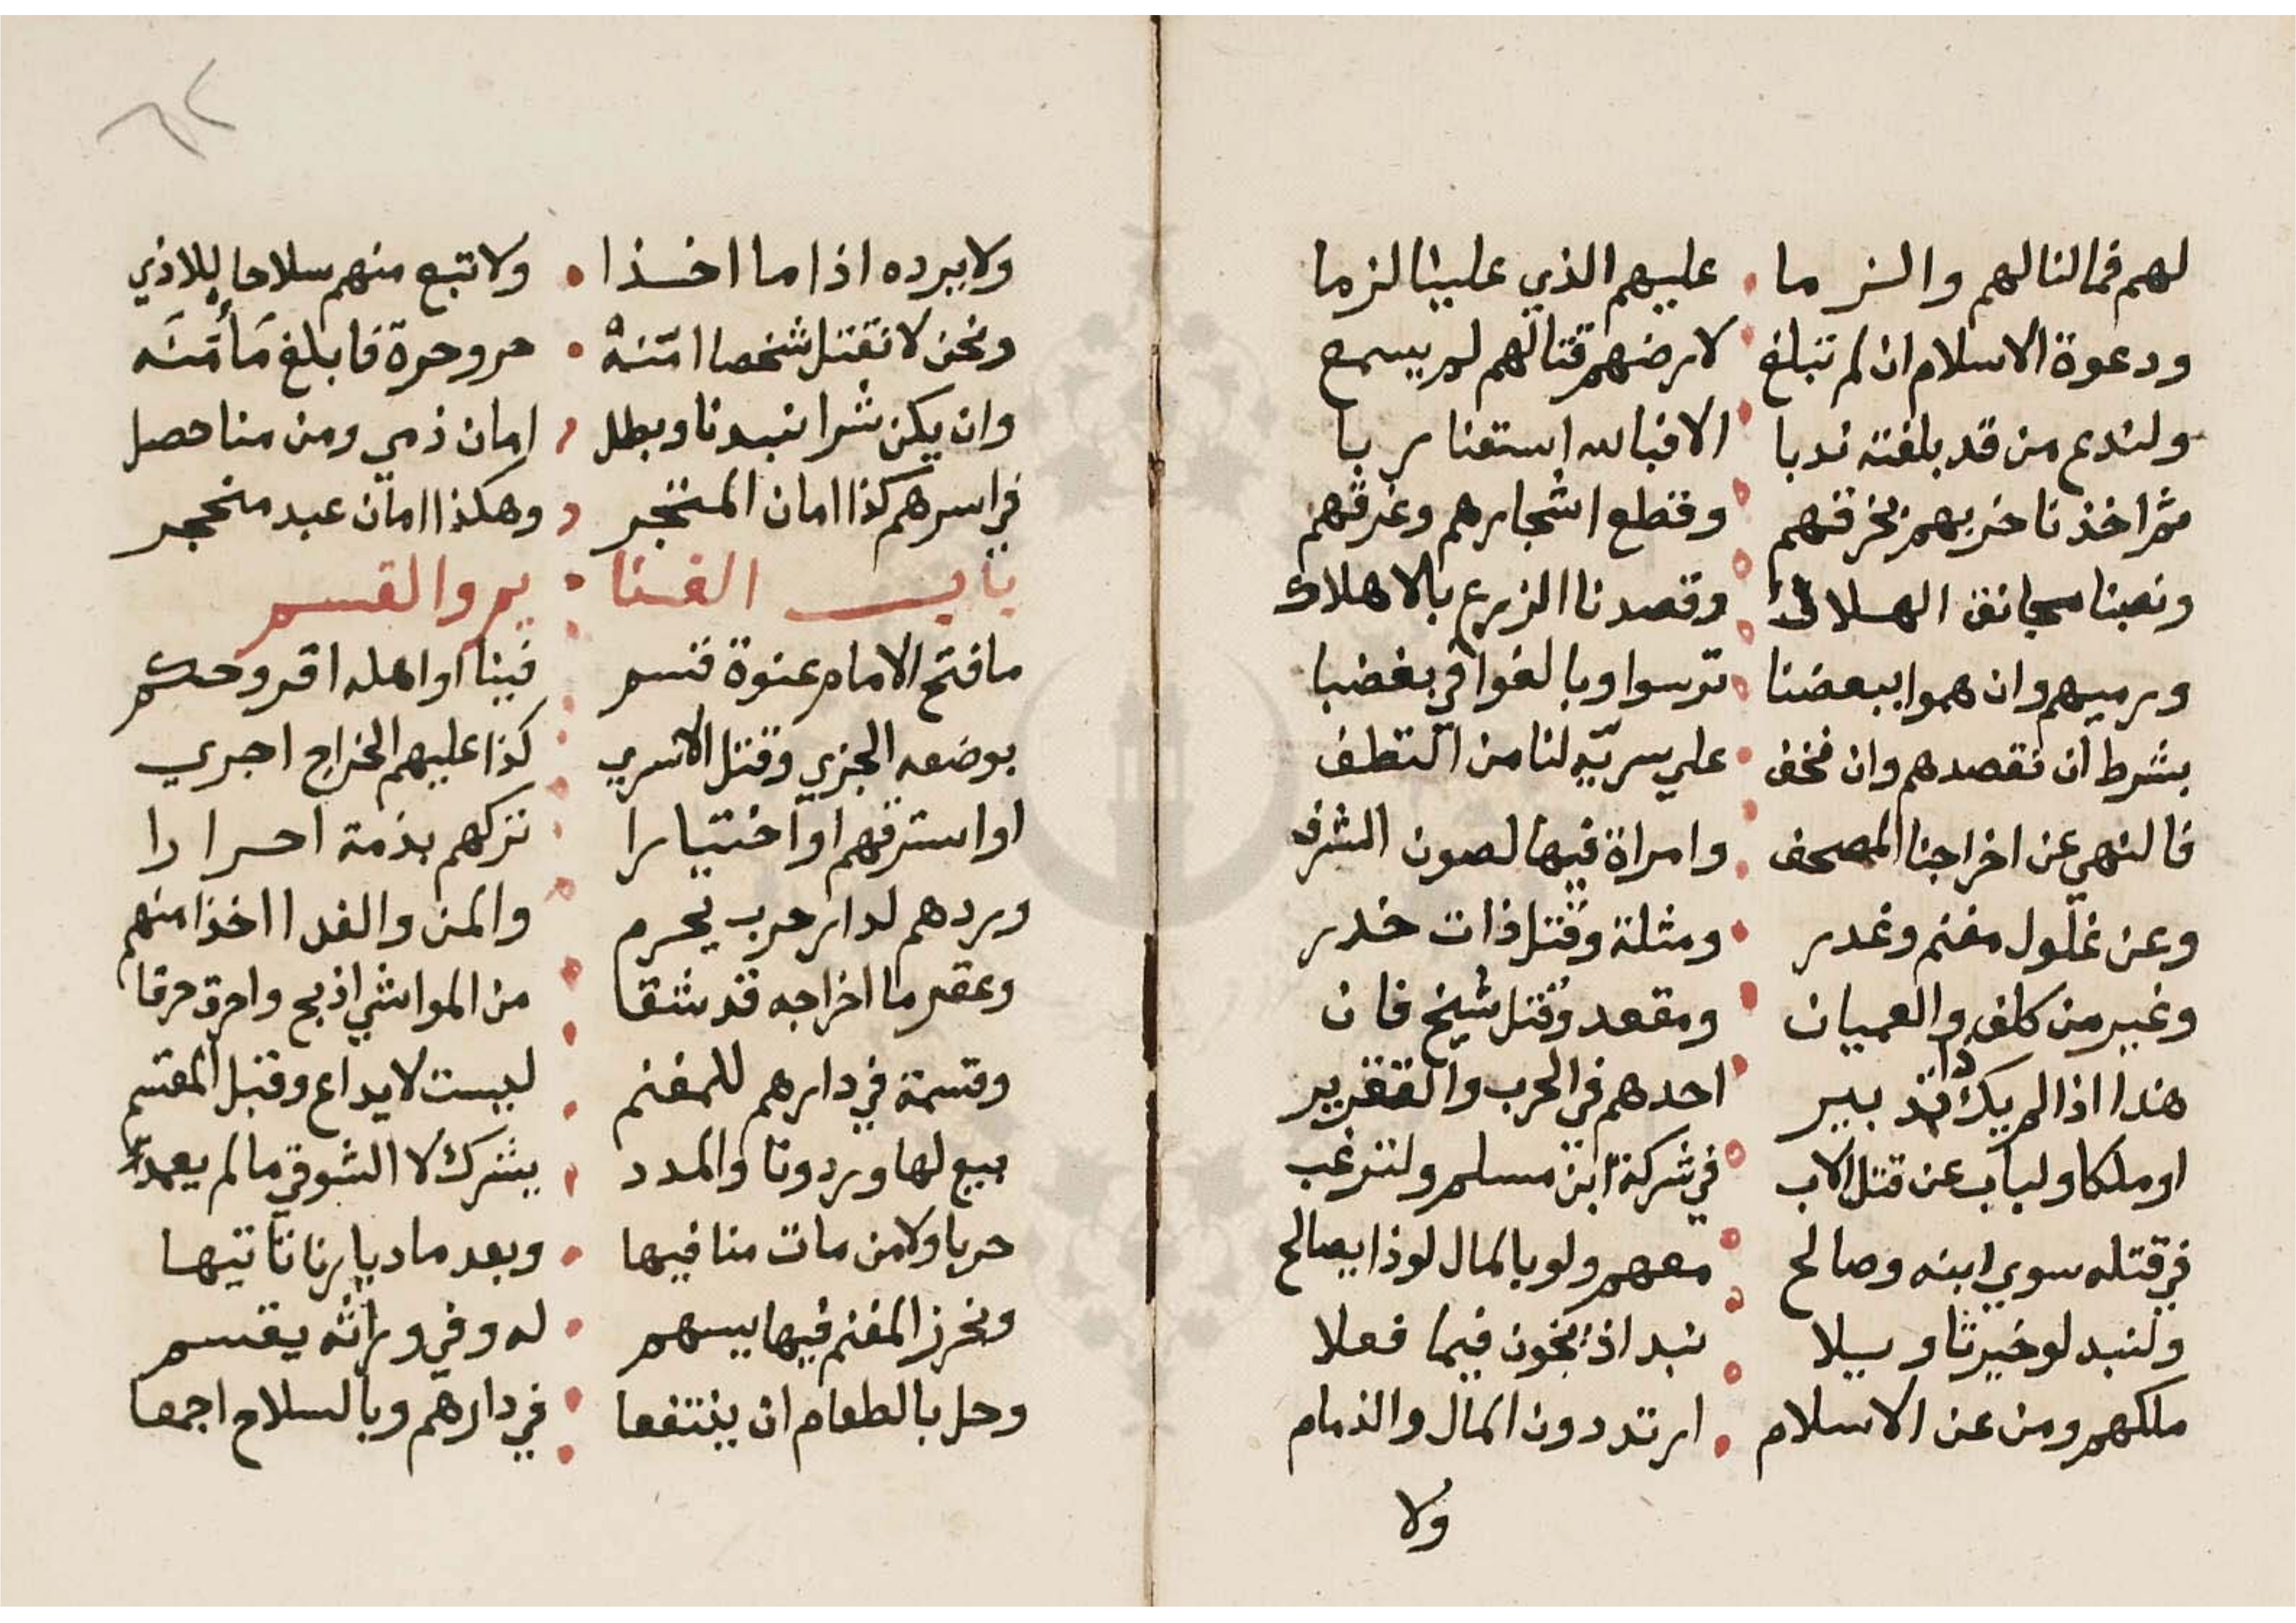 لهم فمالنا لهم والزما • عليهم الذي علينا لزما
ودعوة الاسلام ان لم تبلغ • لارضهم قتالهم لم يسمع
ولندع من قد بلغته ندبا • الا فبالله استعنا ربا
ثم اخذنا حربهم بحرقهم • وقطع اشجارهم وغرقهم
ونصبنا مجانق الهلاك • وقصدنا الزرع بالاهلاك
ورميهم وان هموا ببعضنا • ترسوا وبالغوا في بغضنا
بشرط ان نقصدهم وان نخف • علي سرية لنا من التطف
فالنهي عن اخراجنا المصحف • وامراة فيها لصون الشرف
وعن غلول مغنم وغدر • ومثلة وقتل ذات خدر
وغير من كلف والعميان • ومقعد وقتل شيخ فان
هذا اذا لم يك ذا تدبير • احدهم في الحرب والتقرير
او ملكا ولباب عن قتل الاب • في شركة ابن مسلم ولترغب
في قتله سوي ابنه وصالح • معهم ولو بالمال لو ذا يصالح
ولنبد لو خيرتا وسيلا • نبد اذ بخون فيما فعلا
ملكهم ومن عن الاسلام • ارتد دون المال والذمام
ولا
ولا يرده اذا ما اخذا • ولا تبع منهم سلاحا للاذي
ونحن لا نقتل شخصا امنه • حر وحرة فابلغ مأمنه
وان يكن شرا نبدنا وبطل • امان ذمي ومن منا حصل
في اسرهم كذا امان المتجر • وهكذا امان عبد منحجر
باب الغنا • يم والقسم
ما فتح الامام عنوة قسم • فينا او اهله اقر وحكم
بوضعه الجزي وقتل الاسري • كذا عليهم الخراج اجري
او استرقهم او اختيارا • نتركهم بذمة احرارا
وردهم لدار حرب يحرم • والمن والفدا اخذا منهم
وعقر ما اخراجه قد شقا • من المواشي اذبح واحرق حرقا
وقسمة في دارهم للمغنم • ليست لايداع وقبل المقسم
بيع لها وردونا والمدد • يشترك لا السوقي ما لم يعمد
حربا ولا من مات منا فيها • وبعد ما ديارنا تاتيها
ونحرز المغنم فيها يسهم • له وفي وراثه يقسم
وحل بالطعام ان ينتفعا • في دارهم وبالسلاح اجمعا